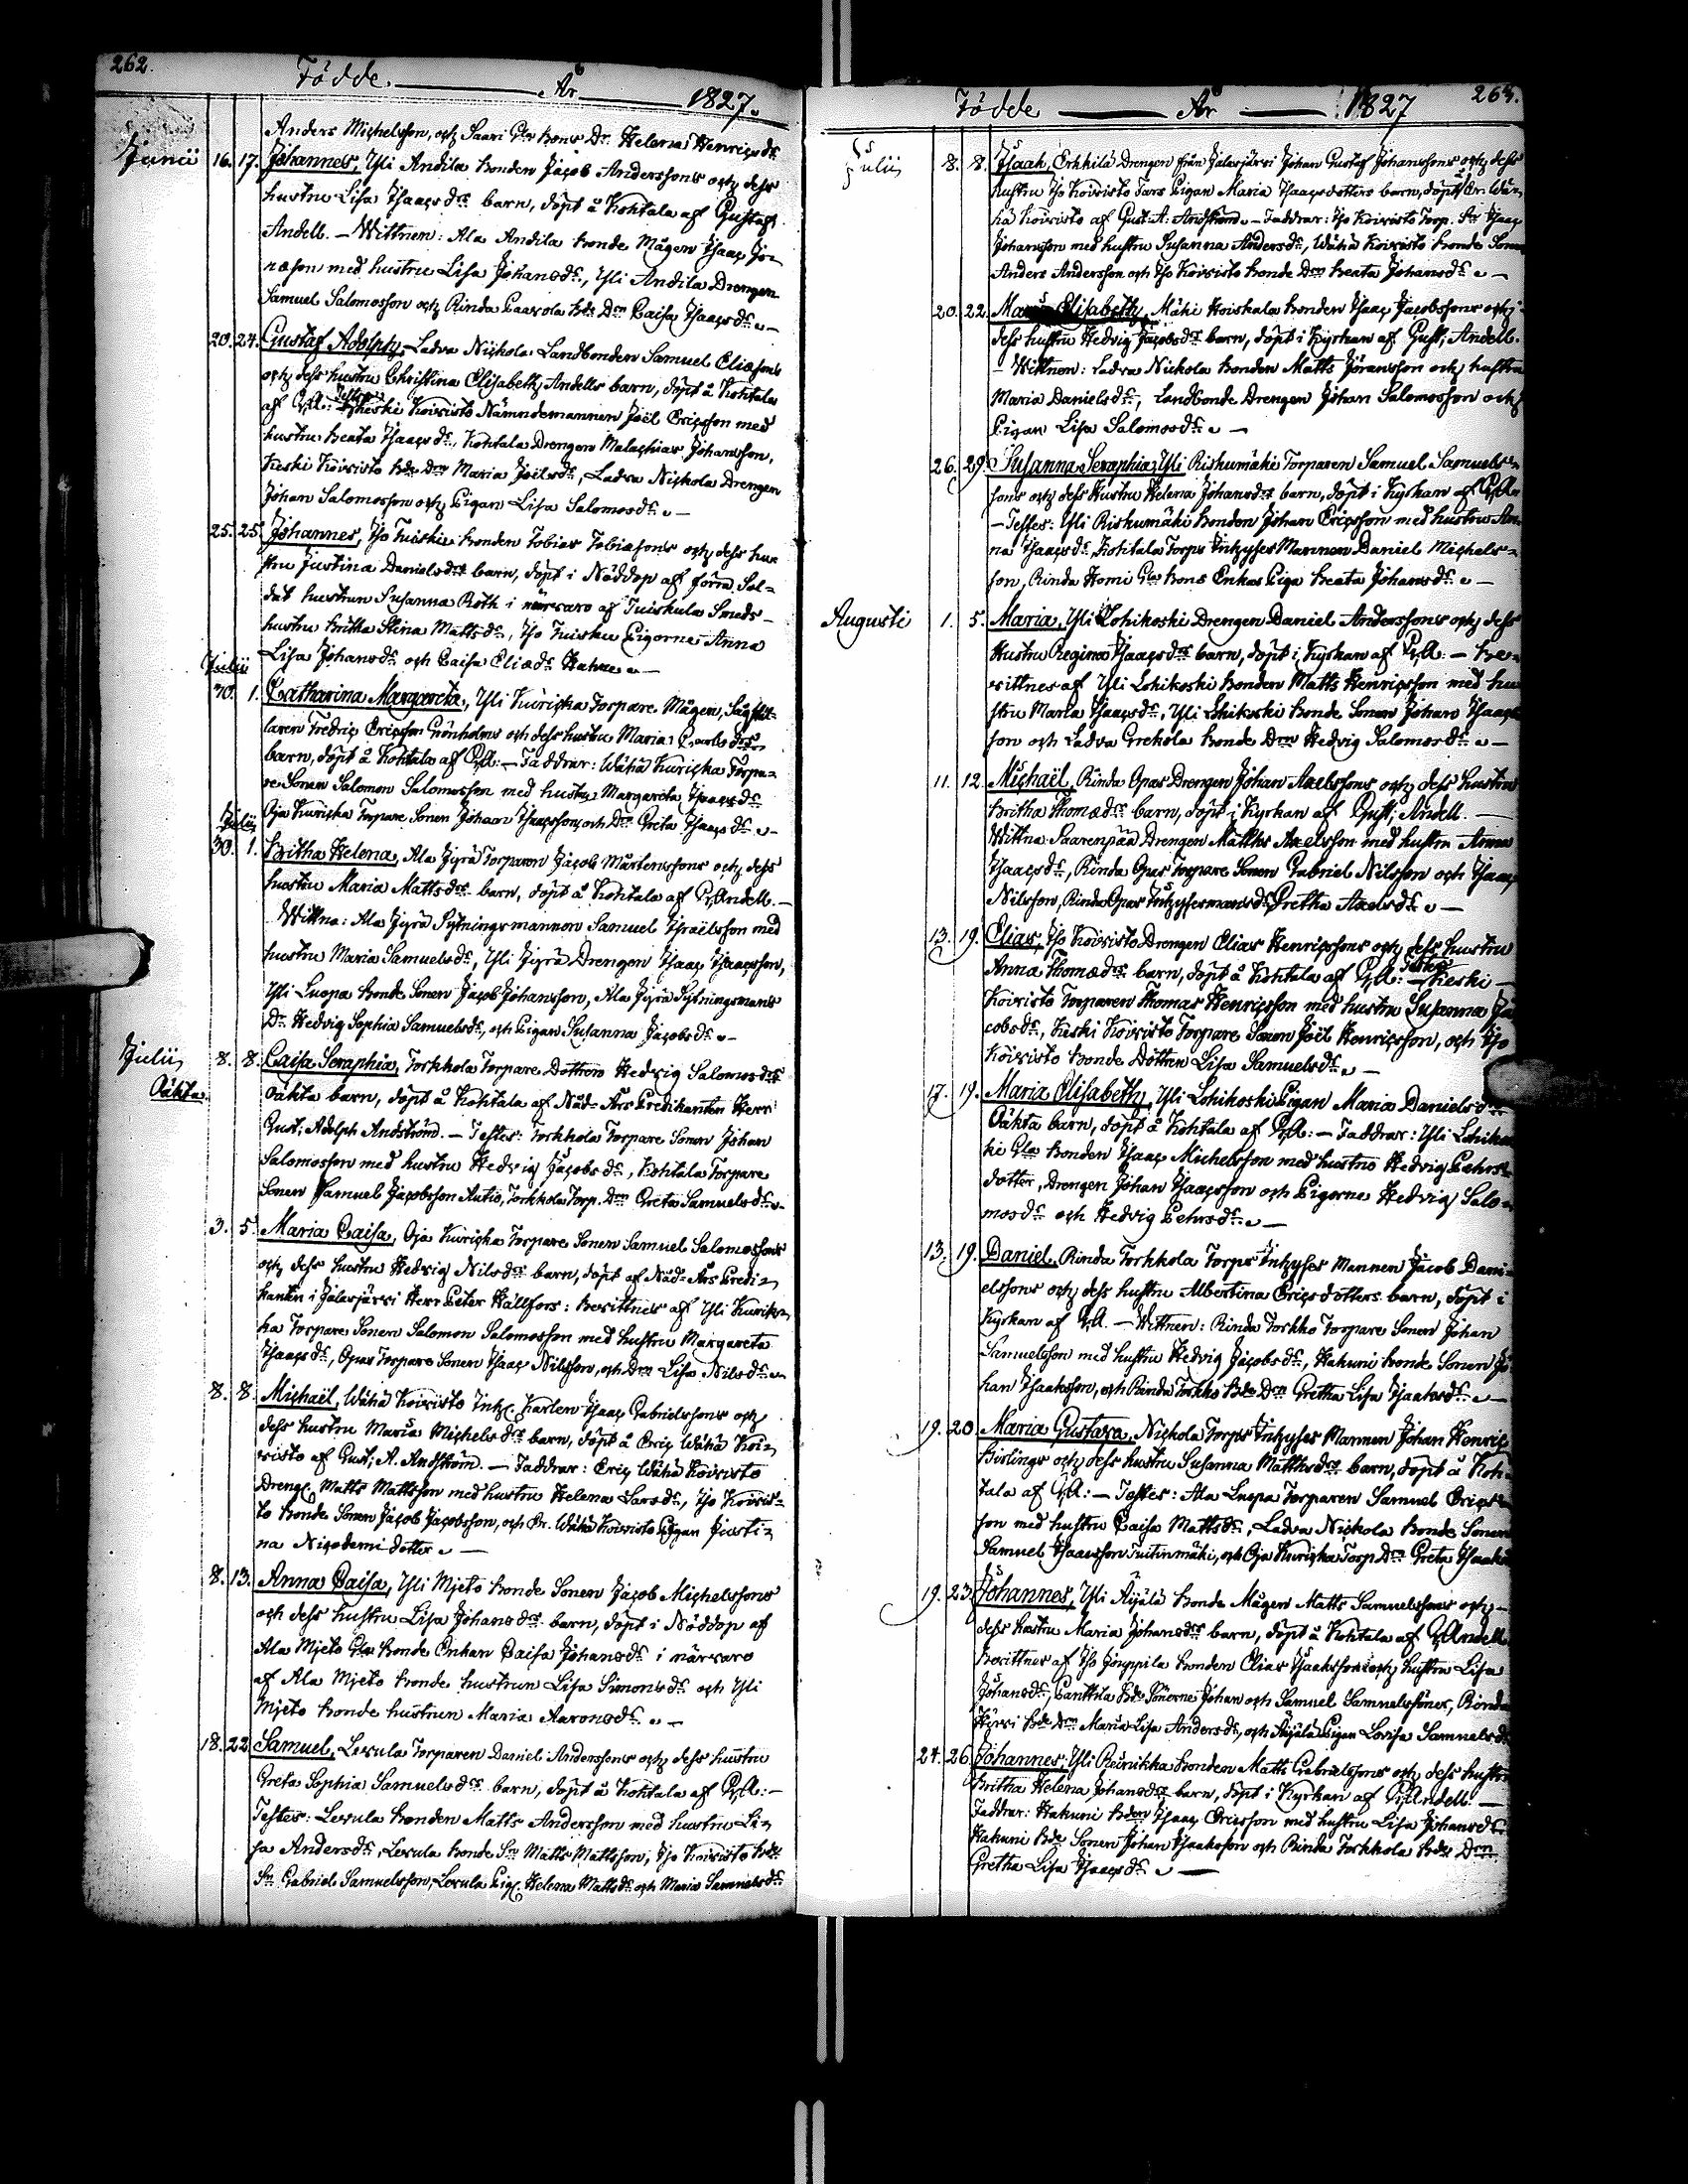 262.
Födde. År 1827.
Anders Michelsson, och Saari Gla Bons Dr Helena Henricsdr
Junii 16. 17. Johannes, Yli Andila Bonden Jacob Anderssons och dess
hustru Lisa Isaacsdrs barn, döpt å Kohtala af Gustaf
Andell. – Wittnen: Ala Andila Bonde Mågen Isaac Jo-
næson med hustru Lisa Johansdr, Yli Andila Drengen
Samuel Salomosson och Rinda Paavola Bde Drn Caisa Isaacsdr
20. 24. Gustaf Adolph, Ladva Nickola Landbonden Samuel Eliæsons
och dess hustru Christina Elisabeth Andells barn, döpt å Kohtala
af GA: Testes Keski Koivisto Nämndemannen Joël Ericsson med
hustru Beata Isaacsdr, Kohtala Drengen Malachias Johansson,
Keski Koivisto Bde Drn Maria Joelsdr, Ladva Nickola Drengen
Johan Salomosson och Pigan Lisa Salomosdr
25. 25. Johannes, Iso Tuisku Bonden Tobias Tobiæsons och dess hu-
stru Justina Danielsdrs barn, döpt i Nöddop af förra Sol-
dat hustrun Susanna Roth i närvaro af Tuiskula Smeds-
hustru Britha Stina Mattsdr, Iso Tuisku Pigorna Anna
Lisa Johansdr och Caisa Eliædr Hahne
Julii
30. 1. Catharina Margareta, Yli Kuricka Torpare Mågen, Sågstäl-
laren Fredric Ericsson Grönholms och dess hustru Maria Carlsdrs
barn, döpt å Kohtala af GA: – Faddrar: Wähä Kuricka Torpa-
re Sonen Salomon Salomosson med hustru Margareta Isaacsdr
Oja Kuricka Torpare Sonen Johan Isaacsson, och Drn Greta Isaacsdr
Julii
30. 1. Britha Helena, Ala Jyrä Torparen Jacob Mårtenssons och dess
hustru Maria Mattsdrs barn, döpt å Kohtala af GAndell. –
Wittna: Ala Jyrä Sytningsmannen Samuel Israëlsson med
hustru Maria Samuelsdr, Yli Jyrä Drengen Isaac Isaacsson,
Yli Luopa Bonde Sonen Jacob Johansson, Ala Jyrä Sytningsmans
Dr Hedvig Sophia Samuelsdr, och Pigan Susanna Jacobsdr
Julii 8. 8. Caisa Seraphia, Torkkola Torpare Dottren Hedvig Salomosdrs
Oäkta
Oäkta barn, döpt å Kohtala af Nåd-Års Predikanten Herr
Gust: Adolph Andström. – Testes: Torkkola Torpare Sonen Johan
Salomosson med hustru Hedvig Jacobsdr, Kohtala Torpare
Sonen Samuel Jacobsson Autio, Torkkola Torp. Drn Greta Samuelsdr
3. 5. Maria Caisa, Oja Kuricka Torpare Sonen Samuel Salomossons
och dess hustru Hedvig Nilsdrs barn, döpt af Nåd-Års Predi-
kanten i Jalasjärvi Herr Peter Hällfors: Bevittnes af Yli Kurick-
ka Torpare Sonen Salomon Salomosson med hustru Margareta
Isaacsdr, Opas Torpare Sonen Isaac Nilsson, och Drn Lisa Nilsdr
8. 8. Michaël, Wähä Koivisto Inh: Karlen Isaac Gabrielssons och
dess hustru Maria Michelsdrs barn, döpt å Eric Wähä Koi-
visto af Gust: A. Andström. – Faddrar: Eric Wähä Koivisto
Dreng: Matts Mattsson med hustru Helena Larsdr, Iso Koivis-
to Bonde Sonen Jacob Jacobsson, och Er. Wähä Koivisto Pigan Justi-
na Nicodemi dotter
8. 13. Anna Caisa, Yli Mjeto Bonde Sonen Jacob Michelssons
och dess hustru Lisa Johansdrs barn, döpt i Nöddop af
Ala Mjeto Gla Bonde Enkan Caisa Johansdr i närvaro
af Ala Mjeto Bonde hustrun Lisa Simonsdr och Yli
Mjeto Bonde hustrun Maria Aaronsdr
18. 22. Samuel, Levula Torparen Daniel Anderssons och dess hustru
Greta Sophia Samuelsdrs barn, döpt å Kohtala af GA: –
Testes: Levula Bonden Matts Andersson med hustru Li-
sa Andersdr, Levula Bonde Sn Matts Mattsson, Iso Koivisto Bde
Sn Gabriel Samuelsson, Levula Pig: Helena Mattsdr och Maria Samuelsdr
Födde År 1827 263.
Julii 8. 8. Isaak, Erkkilä Drengen från Jalasjärvi Johan Gustaf Johanssons och dess
hustru Iso Koivisto Tars Pigan Maria Isaacsdotters barn, döpt å Er. Wä-
hä Koivisto af Gust: A: Andström – Faddrar: Iso Koivisto Torp. Sn Isaac
Johansson med hustru Susanna Andersdr, Wähä Koivisto Bonde Sonen
Anders Andersson och Iso Koivisto Bonde Drn Beata Johansdr
20. 22. Maria Elisabeth, Mäki Hoiskala Bonden Isaac Jacobssons och
dess hustru Hedvig Jacobsdrs barn, döpt i Kyrkan af Gust: Andell.
– Wittnen: Ladva Nickola Bonden Matts Jöransson och hustru
Maria Danielsdr, Landbonde Drengen Johan Salomosson och
Pigan Lisa Salomosdr
26. 29. Susanna Seraphia, Yli Riskumäki Torparen Samuel Samuels-
sons och dess Hustru Helena Johansdrs barn, döpt i Kyrkan af GA
– Testes: Yli Riskumäki Bonden Johan Ericsson med hustru An-
na Isaacsdr, Kohtala Torps Inhyses Mannen Daniel Michels-
son, Rinda Homi Gla Bons Enkas Piga Beata Johansdr
Augusti 1. 5. Maria, Yli Lohikoski Drengen Daniel Anderssons och dess
Hustru Regina Isaacsdrs barn, döpt i Kyrkan af GA: – Be-
vittnes af Yli Lohikoski Bonden Matts Henricsson med hu-
stru Maria Isaacsdr, Yli Lohikoski Bonde Sonen Johan Isaacs-
son och Ladva Grekola Bonde Drn Hedvig Salomosdr
11. 12. Michaël, Rinda Opas Drengen Johan Axelssons och dess hustru
Britha Thomædrs barn, döpt i Kyrkan af Gust: Andell. –
Wittna: Saarenpää Drengen Matths Axelsson med hustru Anna
Isaacsdr, Rinda Opas Torpare Sonen Gabriel Nilsson och Isaac
Nilsson, Rinda Opas Inhysesmansdr Gretha Axelsdr
13. 19. Elias, Iso Koivisto Drengen Elias Henricssons och dess hustru
Anna Thomædrs barn, döpt å Kohtala af GA: – Testes Keski
Koivisto Torparen Thomas Henricsson med hustru Susanna Ja-
cobsdr, Keski Koivisto Torpare Sonen Joël Henricsson, och Iso
Koivisto Bonde Dottren Lisa Samuelsdr
17. 19. Maria Elisabeth, Yli Lohikoski Pigan Maria Danielsdrs
Oäkta barn, döpt å Kohtala af GA: – Faddrar: Yli Lohikos-
ki Gla Bonden Isaac Michelsson med hustru Hedvig Pehrs-
dotter, Drengen Johan Isaacsson och Pigorna Hedvig Salo-
mosdr och Hedvig Pehrsdr
13. 19. Daniel, Rinda Torkkola Torps Inhyses Mannen Jacob Dani-
elssons och dess hustru Albertina Ericsdotters barn, döpt i
Kyrkan af GA. – Wittnen: Rinda Torkko Torpare Sonen Johan
Samuelsson med hustru Hedvig Jacobsdr, Hakuni Bonde Sonen Jo-
han Isaaksson, och Rinda Torkko Bde Drn Gretha Lisa Isaaksdr
19. 20. Maria Gustava, Nickola Torps Inhyses Mannen Johan Henric
Birlings och dess hustru Susanna Matthsdrs barn, döpt å Koh-
tala af GA: – Testes: Ala Luopa Torparen Samuel Erics-
son med hustru Caisa Mattsdr, Ladva Nickola Bonde Sonen
Samuel Isaacsson Tuitinmäki, och Oja Kuricka Torp Drn Greta Isaaks
19. 23. Johannes, Yli Äijälä Bonde Mågen Matts Samuelssons och
dess hustru Maria Johansdrs barn, döpt å Kohtala af GAndell
Bevittnes af Iso Jouppila Bonden Elias Isaaksson och hustru Lisa
Johansdr, Panttila Bde Sönerne Johan och Samuel Samuelssöner, Rinda
Hyrri Bde Drn Maria Lisa Andersdr, och Äijälä Pigan Lovisa Samuelsdr
24. 26. Johannes, Yli Reinikka Bonden Matts Gabrielssons och dess hustru
Britha Helena Johansdrs barn, döpt i Kyrkan af GAndell. –
Faddrar: Hakuni Bden Isaac Ericsson med hustru Lisa Johansdr
Hakuni Bde Sonen Johan Isaaksson och Rinda Torkkola Bde Drn
Gretha Lisa Isaacsdr